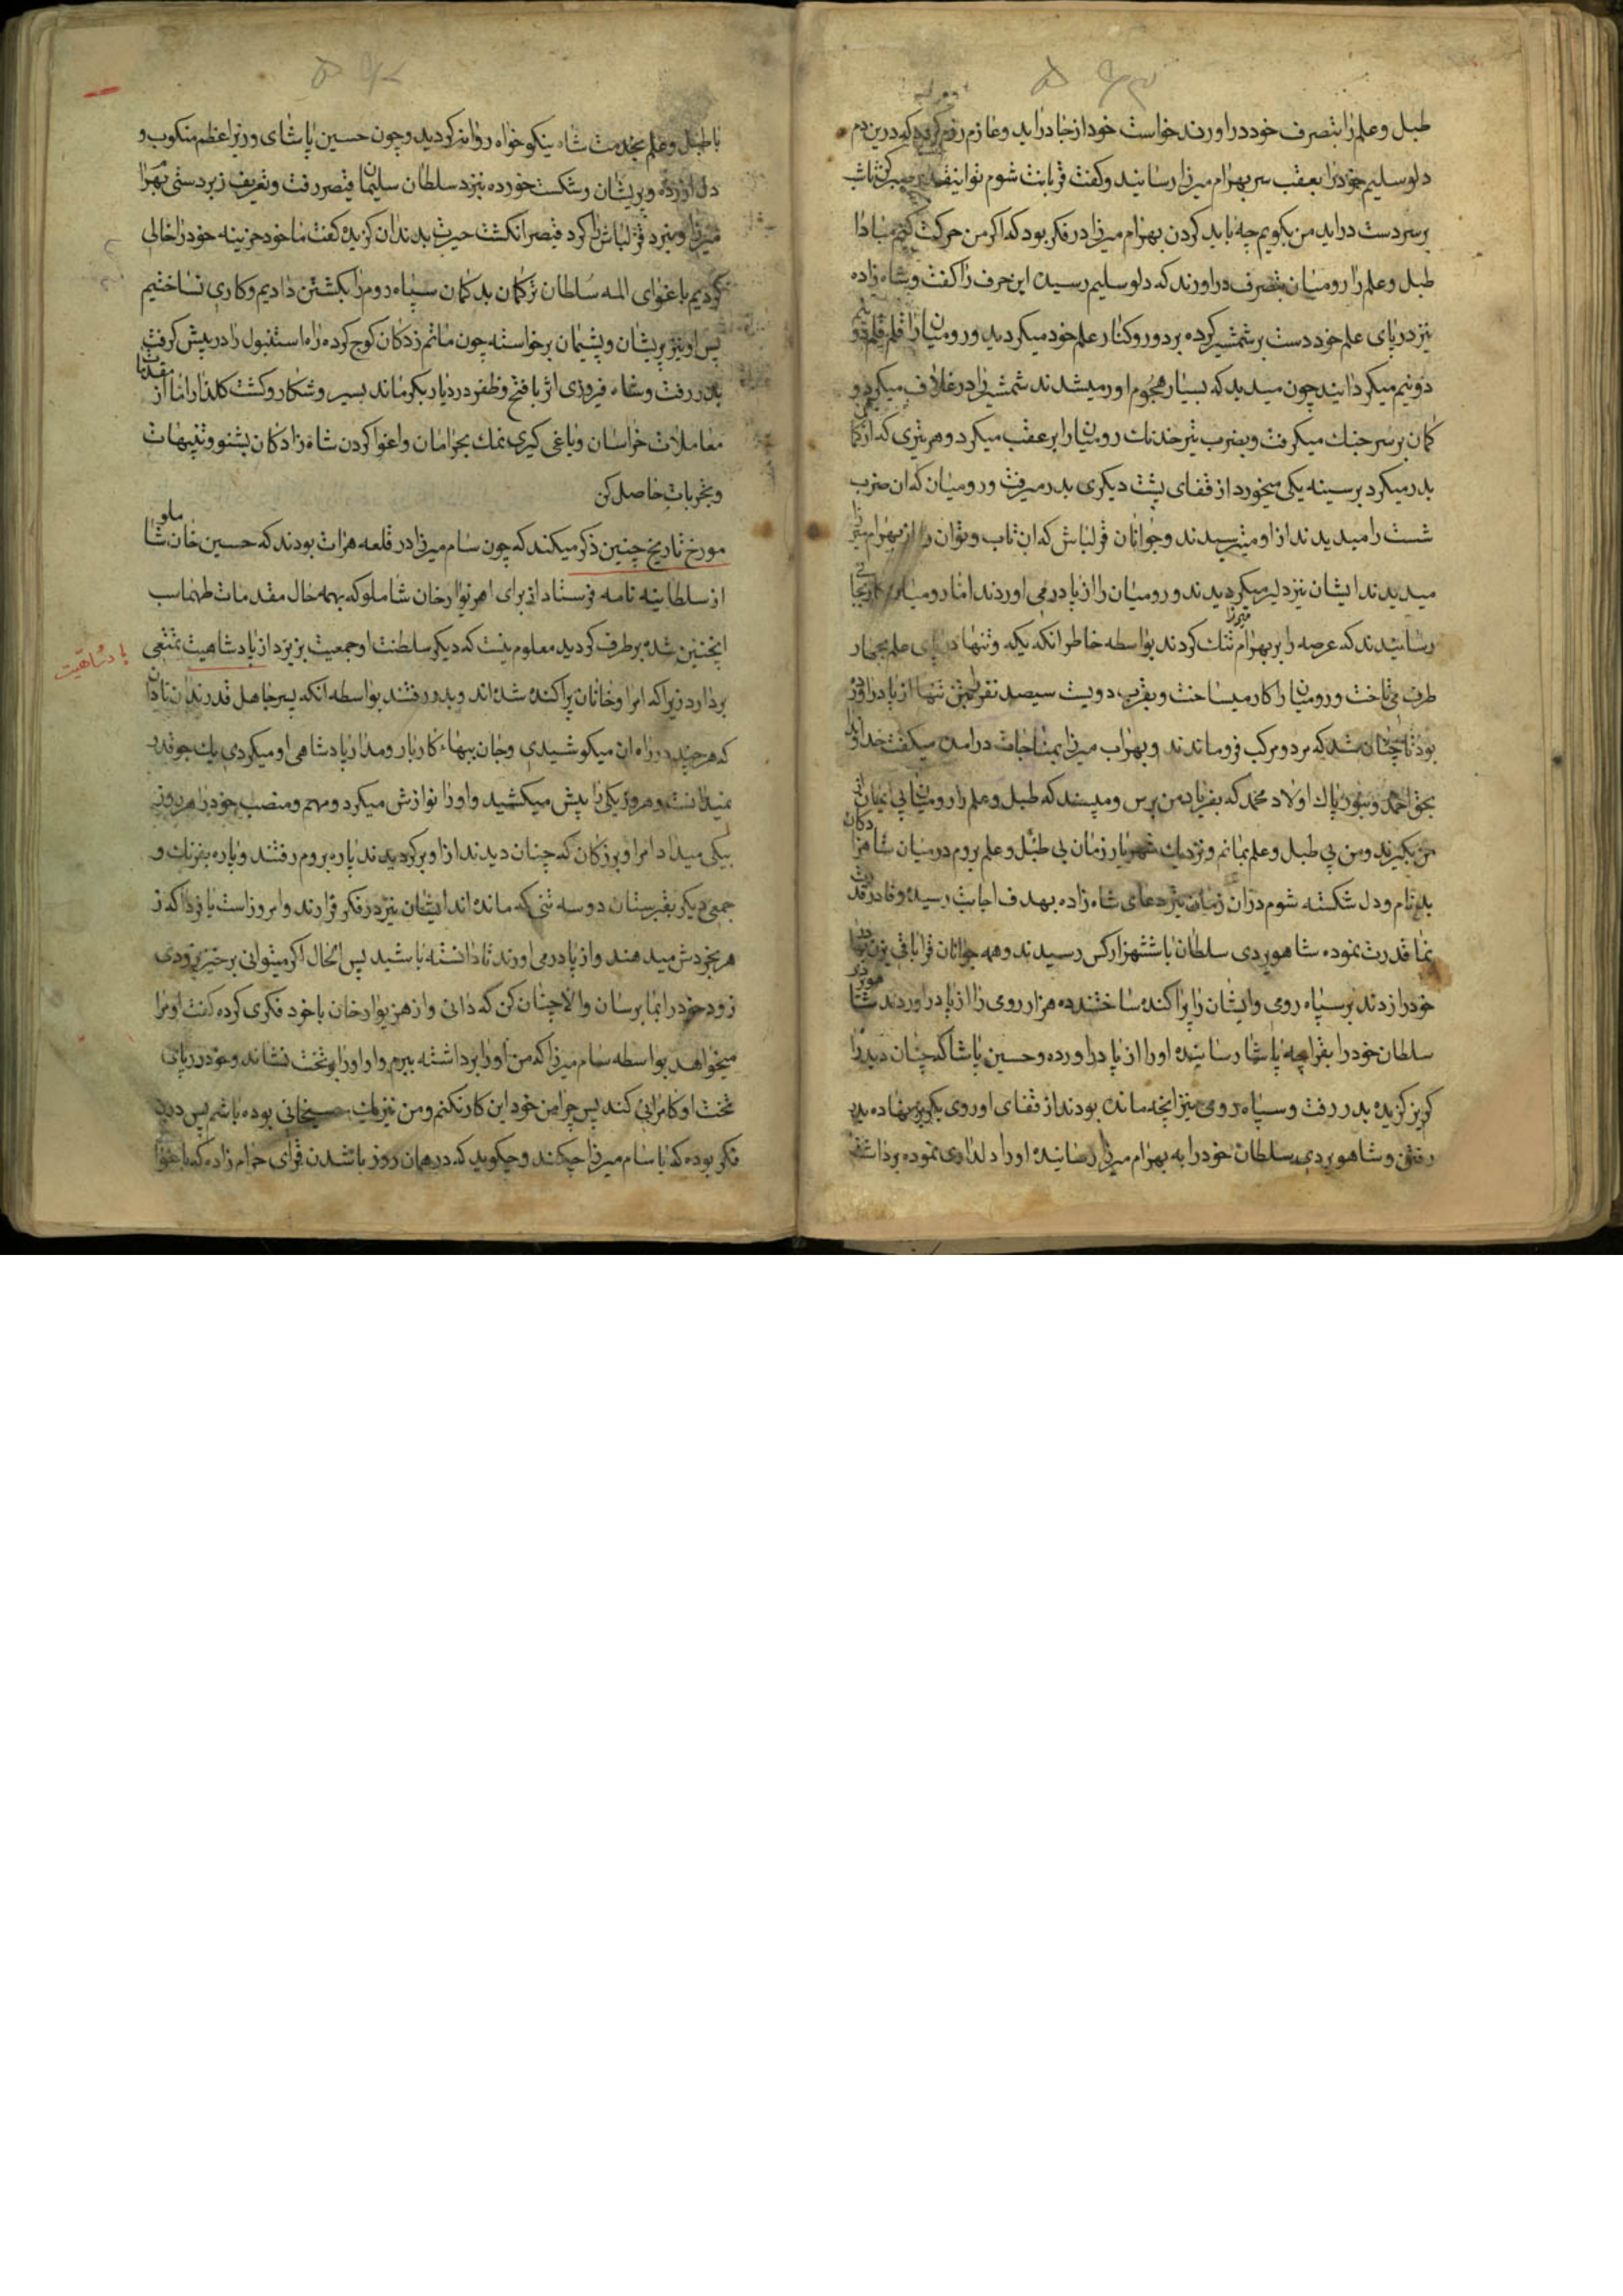 طبل و علم را بتصرف خود در اورند خواست خود از جا درآید و عازم رزم کردد که درین دم
دلو سلیم خود را بعقب سر بهرام میرزا رسانید و کفت قربانت شوم توانیقدر صبر کن تا شب
بر سر دست دراید من بکویم چه باید کردن بهرام میرزا در فکر بود که اکر من حرکت کنم مبادا
طبل و علم را رومیان بتصرف در اورند که دلو سلیم رسید این حرف را کفت و شاه زاده
نیز در پای علم خود دست بر شمشیر کرده بر دور و کنار علم خود میکردید و رومیان را قلم قلم و دو نیم
دو نیم میکردانید چون میدید که بسیار هجوم اور میشدند شمشیر را در غلاف میکرد و
کمان بر سر جنك میکرفت و بضرب تیر خدنك رومیان را بر عقب میکرد و هر تیری که از کمان
بدر میکرد بر سینه یکی میخورد از قفای پشت دیکری بدر میرفت و رومیان که ان ضرب
شست را میدیدند از او میترسیدند و جوانان قزلباش که ان تاب و توان را از بهرام میرزا
میدیدند ایشان نیز دلیر میکردیدند و رومیان را از پا در می اوردند اما رومیان کار بجائی
رسانیدند که عرصه را بر بهرام میرزا تنك کردند بواسطه خاطر انکه یکه و تنها در پای علم بچهار
طرف می تاخت و رومیان را کار میساخت و بقرب دویست سیصد نفر بتیغ تنها از پا در اورده
بود تا چنان شد که مرد و مرکب فرو ماندند و بهرام میرزا بمناجات درامد میکفت خداوندا
بحق احمد و بنور پاك اولاد محمد که بفریاد من برس و مپسند که طبل و علم را رومیان بی ایمان از
من بکیرند و من بی طبل و علم بمانم و نزدیك شهریار زمان بی طبل و علم بروم در میان شاهزادکان
بد نام و دل شکسته شوم دران زمان تیر دعای شاه زاده بهدف اجابت رسیده و قادر قدرت
نما قدرت نموده شاهویردی سلطان با ششهزار کس رسیدند و همه جوانان قراباقی بزن بها در
خود را زدند بر سپاه رومی و ایشان را پراکنده ساختند ده هزار رومی را از پا در اوردند شاهویردی
سلطان خود را بقراچه پاشا رسانیده او را از پا در اورده و حسین پاشا که چنان دید راه
کریز کزیده بدر رفت و سپاه رومی نیز انچه مانده بودند از قفای او روی بکریز نهاده بدر
رفتن و شاهویردی سلطان خود را به بهرام میرزا رسانیده او را دلداری نموده برداشته
با طبل و علم بخدمت شاه نیکو خواه روانه کردید و چون حسین پاشای وزیر اعظم منکوب و
دل ازرده و پریشان و شکست خورده نزد سلطان سلیمان قیصر رفت و تعریف زبردستی بهرام
میرزا و نبرد قزلباش را کرد قیصر انکشت حیرت بدندان کزیده کفت ما خود خزینه خود را خالی
کردیم باغوای المه سلطان ترکمان بد کمان سپاه روم را بکشتن دادیم و کاری نساختیم
پس او نیز پریشان و پشیمان برخواسته چون ماتم زدکان کوچ کرده راه استنبول را در پیش کرفت
بدر رفت و شاه فیروزی اثر با فتح و ظفر در دیار بکر ماند بسیر و شکار و کشت کلذار اما از مقدمات
معاملات خراسان و یاغی کیری نمك بحرامان و اغوا کردن شاه زادکان بشنو و تنبیهات
و تجربات حاصل کن
مورخ تاریخ چنین ذکر میکند که چون سام میرزا در قلعه هرات بودند که حسین خان شاملو
از سلطانیه نامه فرستاد از برای اهریوار خان شاملو که بهمه حال مقدمات طهماسب
اینچنین شد برطرف کردید معلوم نیست که دیکر سلطنت او جمعیت بزیرد از پادشاهیت تمتعی
بردارد زیرا که امرا و خانان پراکنده شده اند و بدر رفتند بواسطه انکه پسر جاهل قدر ندان نادان
پادشاهیت
که هر چند در راه ان میکوشیدی و جان ببهاء کار بار و مدار پادشاهی او میکردی یك جو قدر
نمیدانست و هر روز یکی را پیش میکشید و او را نوازش میکرد و مهم و منصب خود را هر روز
بیکی میداد امرا و بزرکان که چنان دیدند از او برکردیدند پاره بروم رفتند و پاره بفرنك و
جمعی دیکر بقبرستان دو سه تنی که مانده اند ایشان نیز در فکر فرارند و امروز است یا فردا که ز
هر بخوردش میدهند و از پا در می اورند تا دانسته باشید پس الحال اکر میتوانی برخیز بزودی
زود خود را بما برسان و الا چنان کن که دانی و از هزیوار خان با خود فکری کرده کفت او مرا
میخواهد بواسطه سام میرزا که من او را برداشته ببرم و او را بر تخت نشاند و خود در پای
تخت او کامرانی کند پس چرا من خود این کار نکنم و من نیز یك خانی بوده باشم پس درین
فکر بوده که با سام میرزا چکند و چکوید که در همان روز با شدن قرای حرام زاده که باغوا